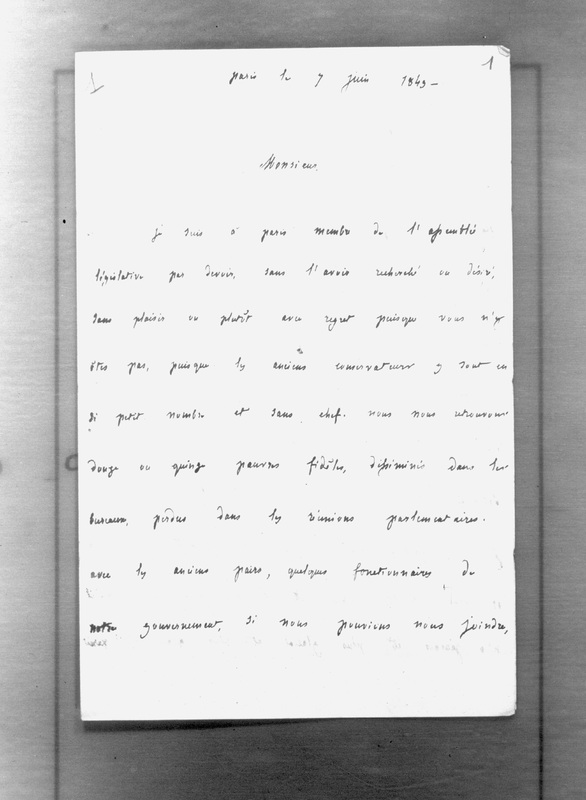 1
paris le 7 juin 1849 -
Monsieur,
je suis à paris membre de l'assemblée
législative par devoir, sans l'avoir recherché ou désiré,
sans plaisir ou plutôt avec regret puisque vous n'y
êtes pas, puisque les anciens conservateurs y sont en
si petit nombre et sans chef. nous nous retrouvons
douze ou quinze pauvres fidèles, disséminés dans les
bureaux, perdus dans les réunions parlementaires.
avec les anciens pairs, quelques fonctionnaires de
notre gouvernement, si nous pouvions nous joindre,